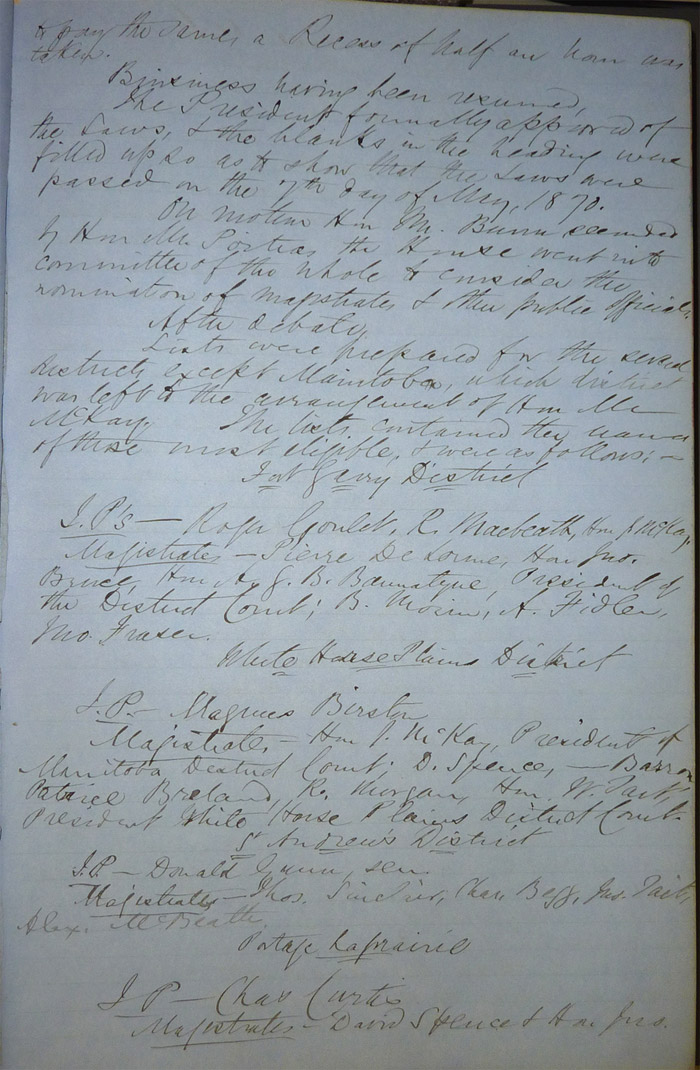 to pay the same, a Recess of half an hour was
taken.
Business having been resumed,
The President formally approved of
the Laws, & the blanks in the heading were
filled up so as to show that the Laws were
passed on the 7th day of May, 1870.
On motion Hon Mr. Bunn seconded
by Hon Mr. Poitras the House went into
committee of the whole to consider the
nomination of magistrates & other public officials.
After debate,
Lists were prepared for the several
districts except Manitoba, which district
was left to the arrangement of Hon Mr
McKay. The lists contained the names
of those most eligible, & were as follows:—
Fort Garry District
J.P's — Roger Goulet, R. Macbeath, Hon J. McKay,
Magistrates — Pierre De Lorme, Hon Jno.
Bruce, Hon A. G. B. Bannatyne, President of
the District Court; B. Morin, A. Fidler,
Jno. Fraser.
White Horse Plains District
J.P. — Magnus Birston
Magistrates — Hon J. McKay, President of
Manitoba District Court: D. Spence, —
Patrice Breland, R. Morgan, Hon. W. Tait,
President White Horse Plains District Court
St Andrew's District
J.P. — Donald Gunn, sen.
Magistrates — Thos. Sinclair, Chas Begg, Jas. Tait,
Alex. McBeath
Portage Laprairie
J P — Chas Curtis
Magistrates — David Spence & Hon Jno.